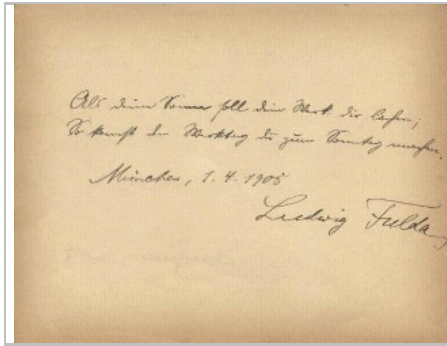 Als deine Sonne soll dein Werk dir lachen;
So kannst du Werktag dir zum Sonntag machen.
München, 1. 4. 1905
Ludwig Fulda